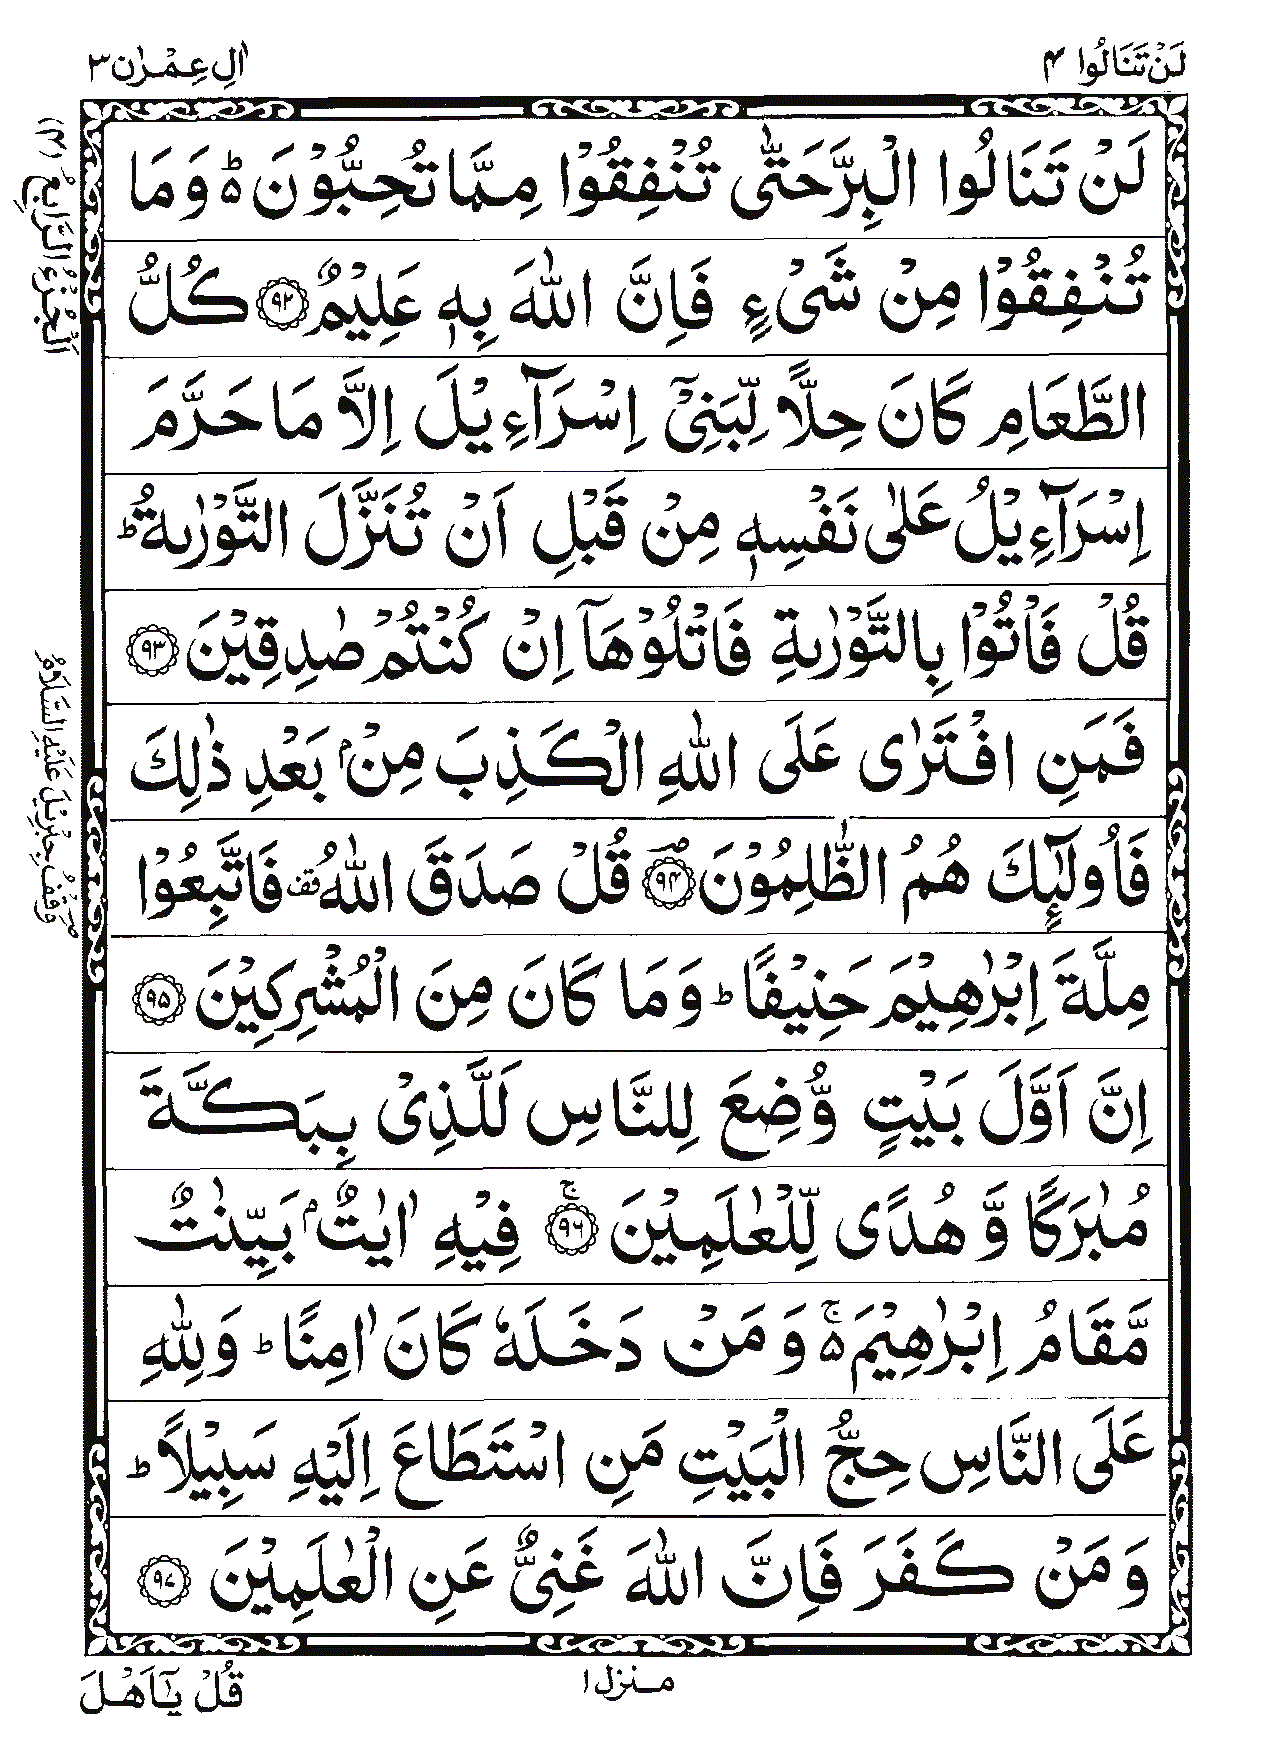 لَنْ تَنَالُوا ۴
اٰلِ عِمْرٰن ۳
اَلْجُزْءُ الرَّابِعُ (۴)
لَنْ تَنَالُوا الْبِرَّ حَتّٰى تُنْفِقُوْا مِمَّا تُحِبُّوْنَ ؕ۬ وَمَا
تُنْفِقُوْا مِنْ شَیْءٍ فَاِنَّ اللّٰهَ بِهٖ عَلِیْمٌ ﴿۹۲﴾ كُلُّ
الطَّعَامِ كَانَ حِلًّا لِّبَنِیْۤ اِسْرَآءِیْلَ اِلَّا مَا حَرَّمَ
اِسْرَآءِیْلُ عَلٰى نَفْسِهٖ مِنْ قَبْلِ اَنْ تُنَزَّلَ التَّوْرٰىةُ ؕ
قُلْ فَاْتُوْا بِالتَّوْرٰىةِ فَاتْلُوْهَاۤ اِنْ كُنْتُمْ صٰدِقِیْنَ ﴿۹۳﴾
فَمَنِ افْتَرٰى عَلَى اللّٰهِ الْكَذِبَ مِنْۢ بَعْدِ ذٰلِكَ
فَاُولٰٓىِٕكَ هُمُ الظّٰلِمُوْنَ ﴿۹۴﴾ قُلْ صَدَقَ اللّٰهُ قف فَاتَّبِعُوْا
مِلَّةَ اِبْرٰهِیْمَ حَنِیْفًا ؕ وَمَا كَانَ مِنَ الْمُشْرِكِیْنَ ﴿۹۵﴾
اِنَّ اَوَّلَ بَیْتٍ وُّضِعَ لِلنَّاسِ لَلَّذِیْ بِبَكَّةَ
مُبٰرَكًا وَّهُدًى لِّلْعٰلَمِیْنَ ۚ﴿۹۶﴾ فِیْهِ اٰیٰتٌۢ بَیِّنٰتٌ
مَّقَامُ اِبْرٰهِیْمَ ۚ۬ وَمَنْ دَخَلَهٗ كَانَ اٰمِنًا ؕ وَلِلّٰهِ
عَلَى النَّاسِ حِجُّ الْبَیْتِ مَنِ اسْتَطَاعَ اِلَیْهِ سَبِیْلًا ؕ
وَمَنْ كَفَرَ فَاِنَّ اللّٰهَ غَنِیٌّ عَنِ الْعٰلَمِیْنَ ﴿۹۷﴾
وَقْفُ جِبْرِیْلَ عَلَیْهِ السَّلَامُ
منزل ۱
قُلْ یٰۤاَهْلَ